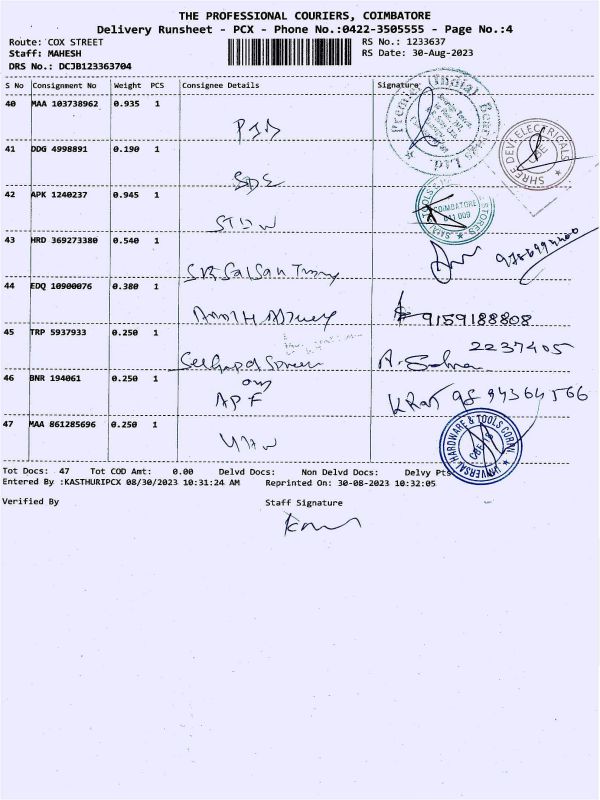 THE PROFESSIONAL COURIERS, COIMBATORE
Delivery Runsheet - PCX - Phone No.:0422-3505555 - Page No.:4
Route: COX STREET RS No.: 1233637
Staff: MAHESH RS Date: 30-Aug-2023
DRS No.: DCJB123363704
S No Consignment No Weight PCS Consignee Details Signature
40 MAA 103738962 0.935 1
Premier (India) Bearings Ltd
41 DDG 4998891 0.190 1 SDE
SHREE DEVI ELECTRICALS
CBE
42 APK 1240237 0.945 1
COIMBATORE
641 009
STORES
43 HRD 369273380 0.540 1
44 EDQ 10900076 0.380 1
9159188808
45 TRP 5937933 0.250 1
2237405
46 BNR 194061 0.250 1
APF
98 94364566
47 MAA 861285696 0.250 1
UNIVERSAL HARDWARE & TOOLS CORPN.
Tot Docs: 47 Tot COD Amt: 0.00 Delvd Docs: Non Delvd Docs: Delvy Pts
Entered By :KASTHURIPCX 08/30/2023 10:31:24 AM Reprinted On: 30-08-2023 10:32:05
Verified By Staff Signature